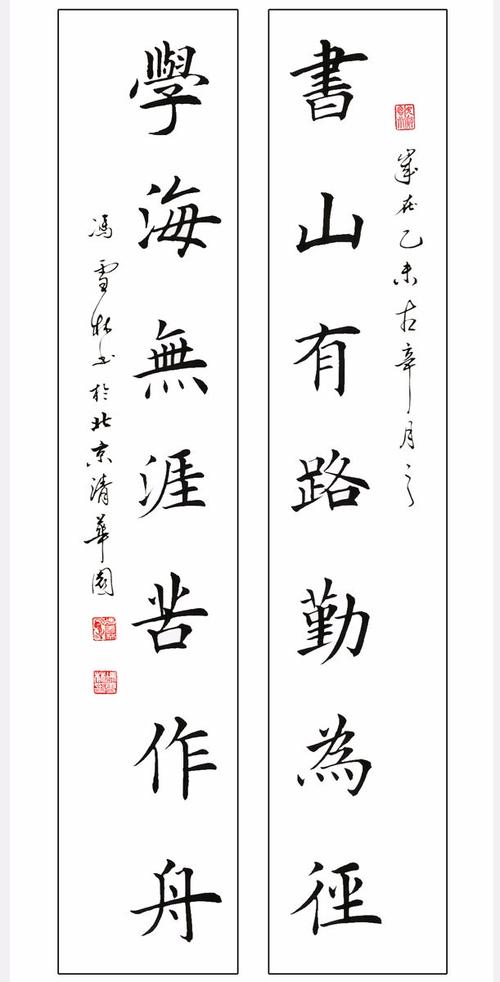 書山有路勤為徑
歲在乙未
學海無涯苦作舟
馮雪林書於北京清華園